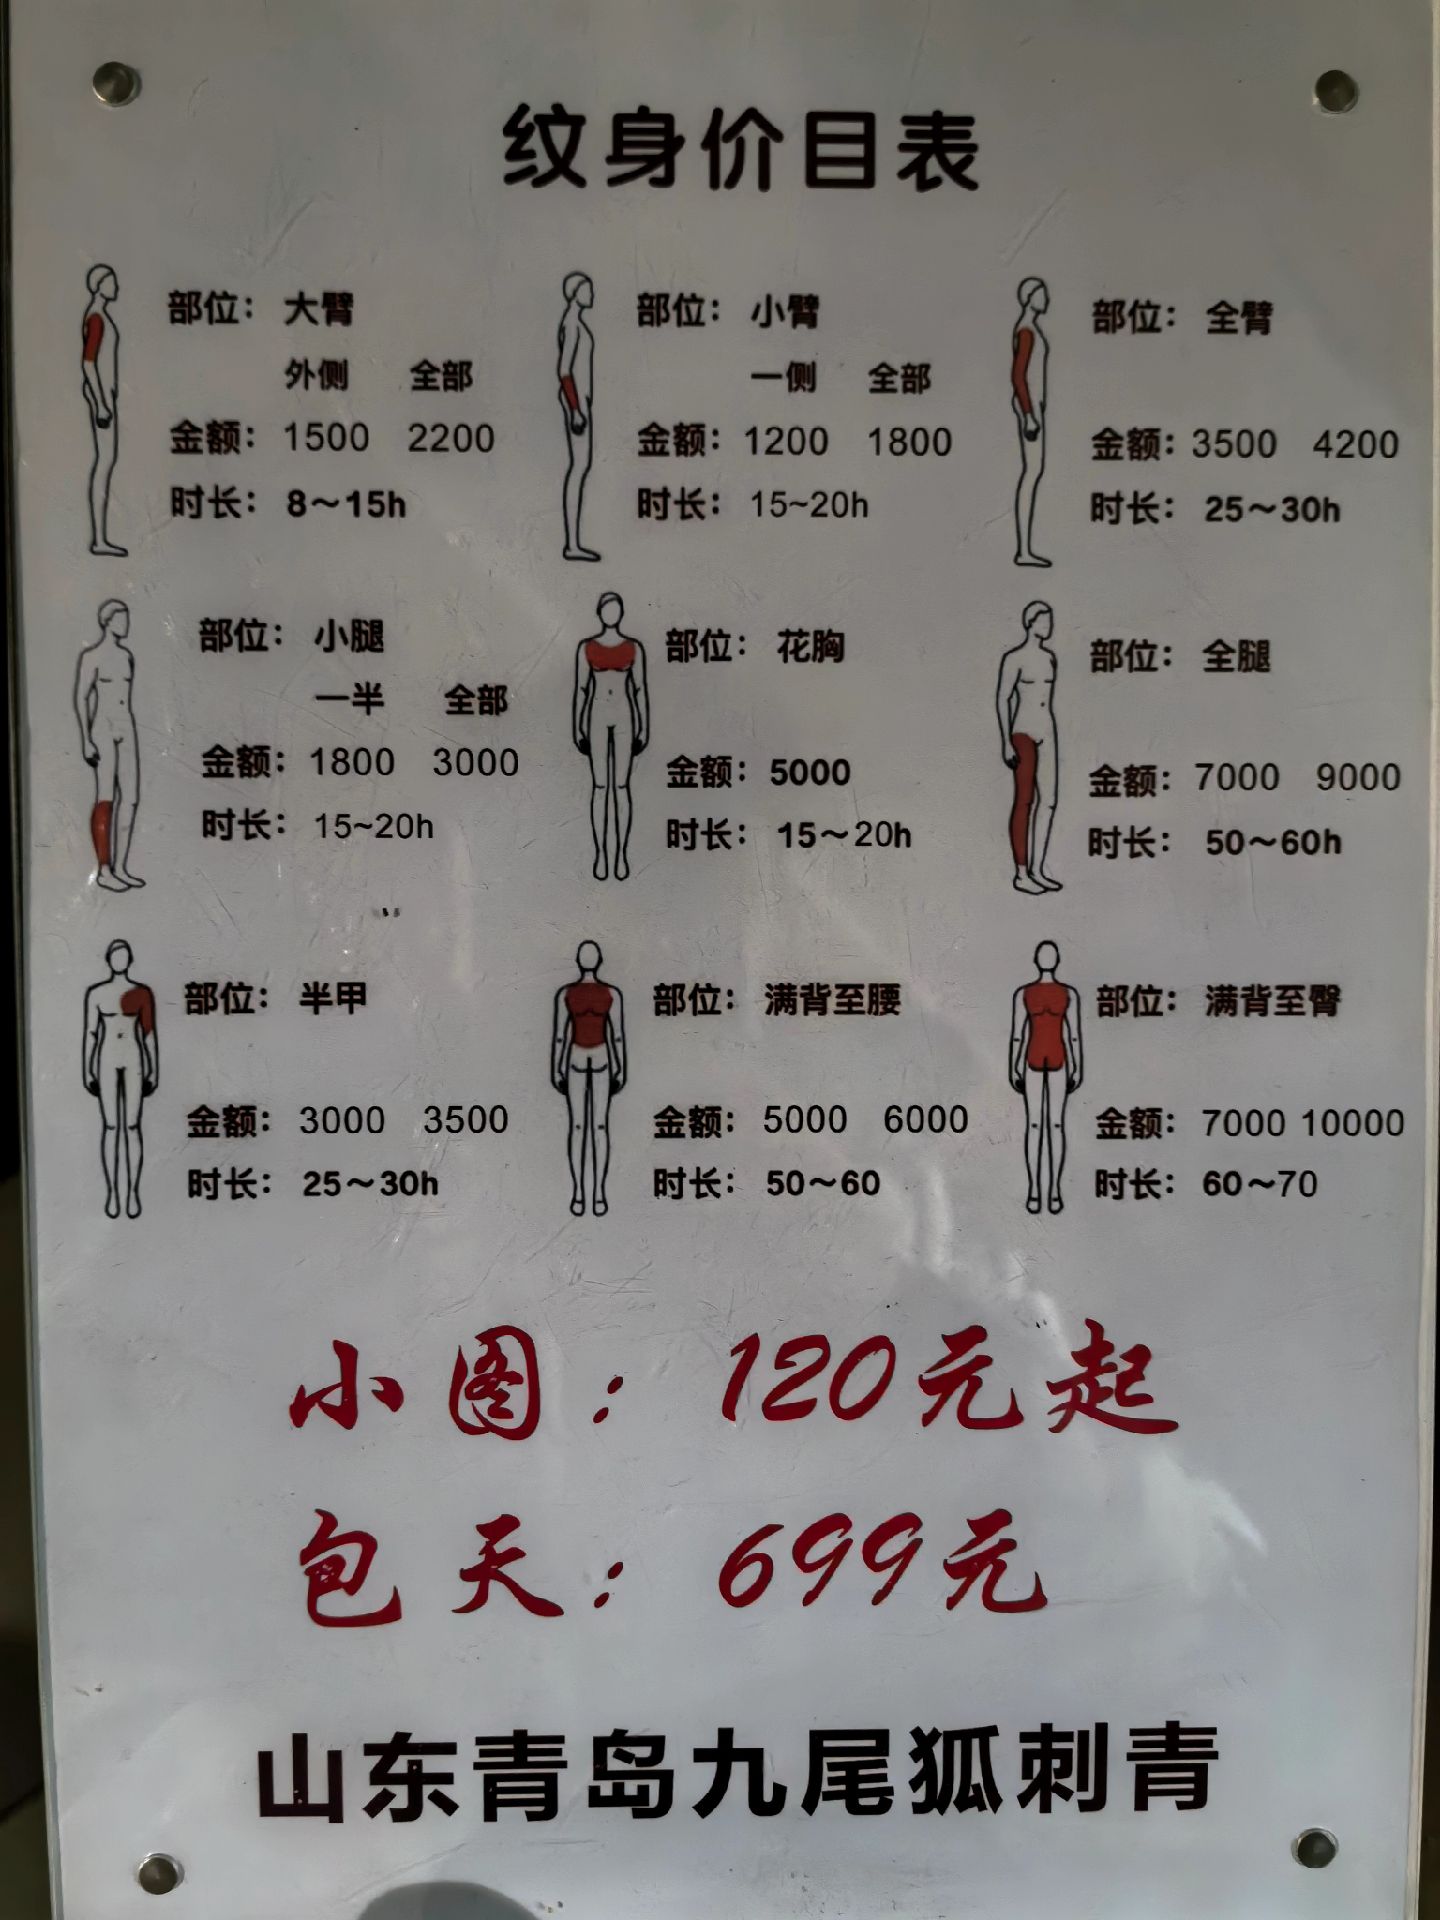 纹身价目表
部位： 大臂
外侧 全部
金额：1500 2200
时长：8～15h
部位： 小臂
一侧 全部
金额：1200 1800
时长：15~20h
部位： 全臂
金额：3500 4200
时长：25～30h
部位： 小腿
一半 全部
金额：1800 3000
时长：15~20h
部位： 花胸
金额：5000
时长：15～20h
部位： 全腿
金额：7000 9000
时长：50～60h
部位： 半甲
金额：3000 3500
时长：25～30h
部位： 满背至腰
金额：5000 6000
时长：50～60
部位： 满背至臀
金额：7000 10000
时长：60～70
小图：120元起
包天：699元
山东青岛九尾狐刺青